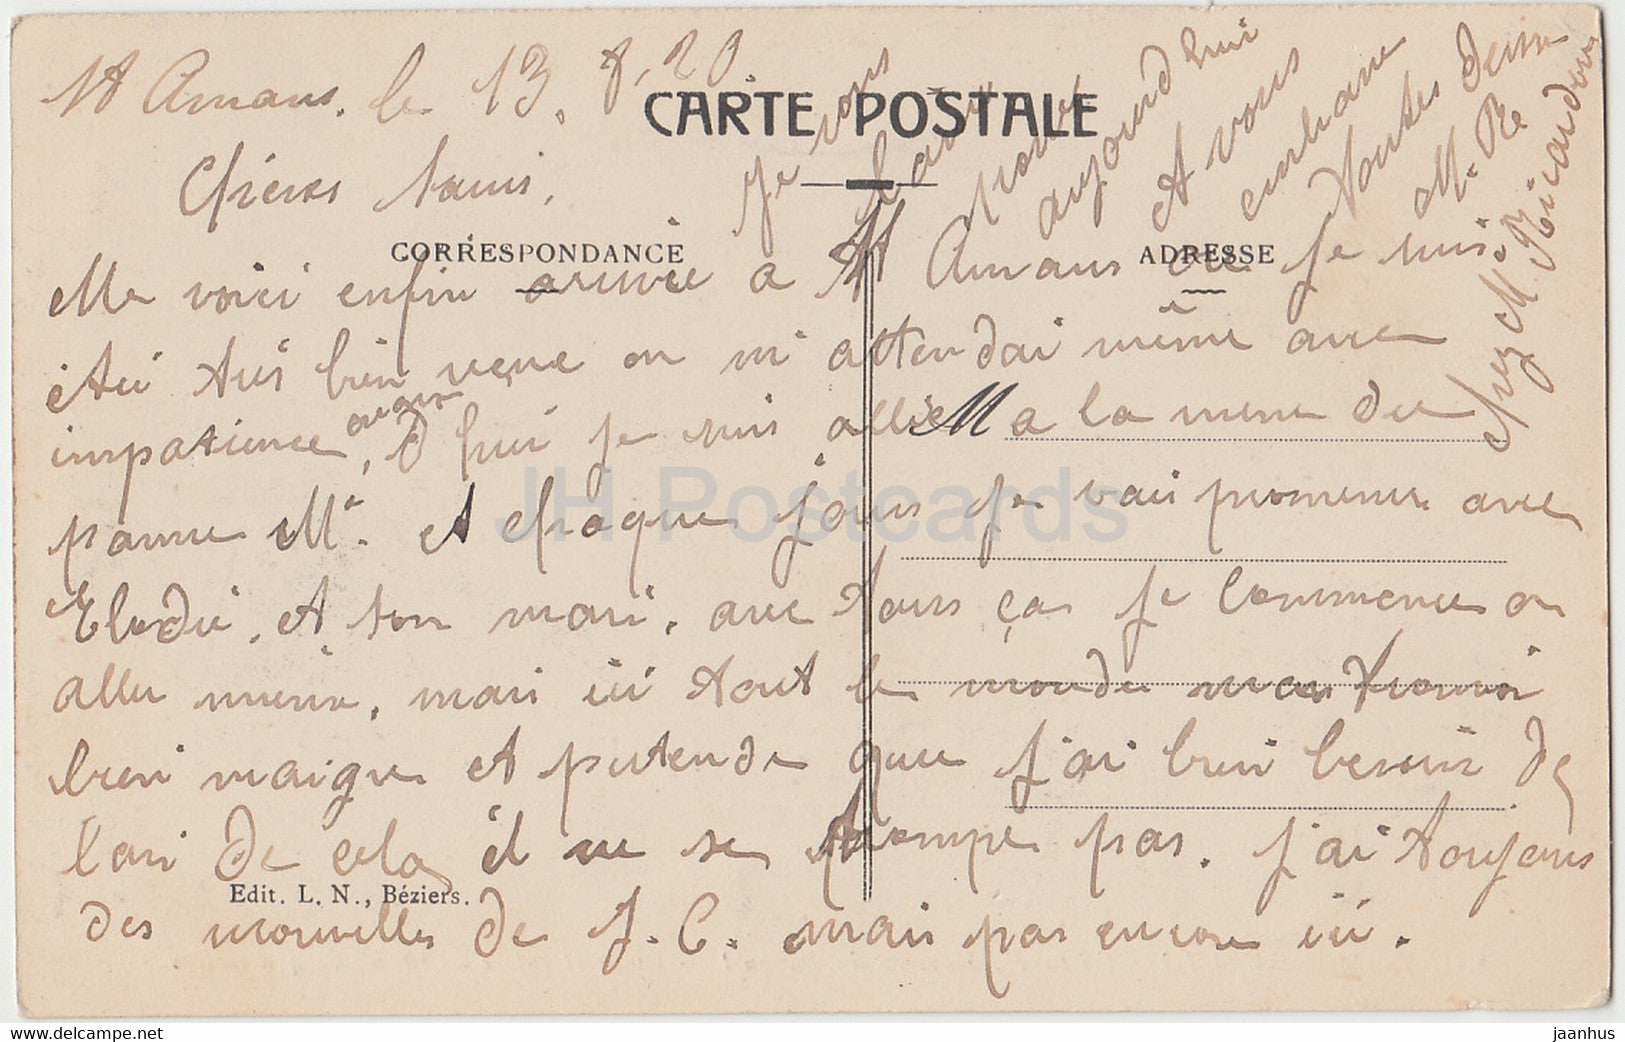 St Amans. le 13. 8. 20
CARTE POSTALE
Chères Amis,
CORRESPONDANCE
ADRESSE
Me voici enfin arrivée a St Amans ou je suis
étéi très bien venue on m'attendai même avec
impatience, D hui je suis allée a la mene du
pauvre Mr. et chaque jours je vais promener avec
Elodie, et son mari, avec tous ça je commence a
aller mieux, mais ici tout le monde me trouvoi
bien maigre et pretende que j'ai bien besoin de
l'air de cela il ne se trompe pas. J'ai toujours
des nouvelles de J. C. mais pas encore ici.
Je vous
l'avai
promet
aujourd hui
et vous
embrasse
toutes deux
M. Re
chez M. Ricardou
Edit. L. N., Béziers.
JH Postcards
www.delcampe.net
jaanhus